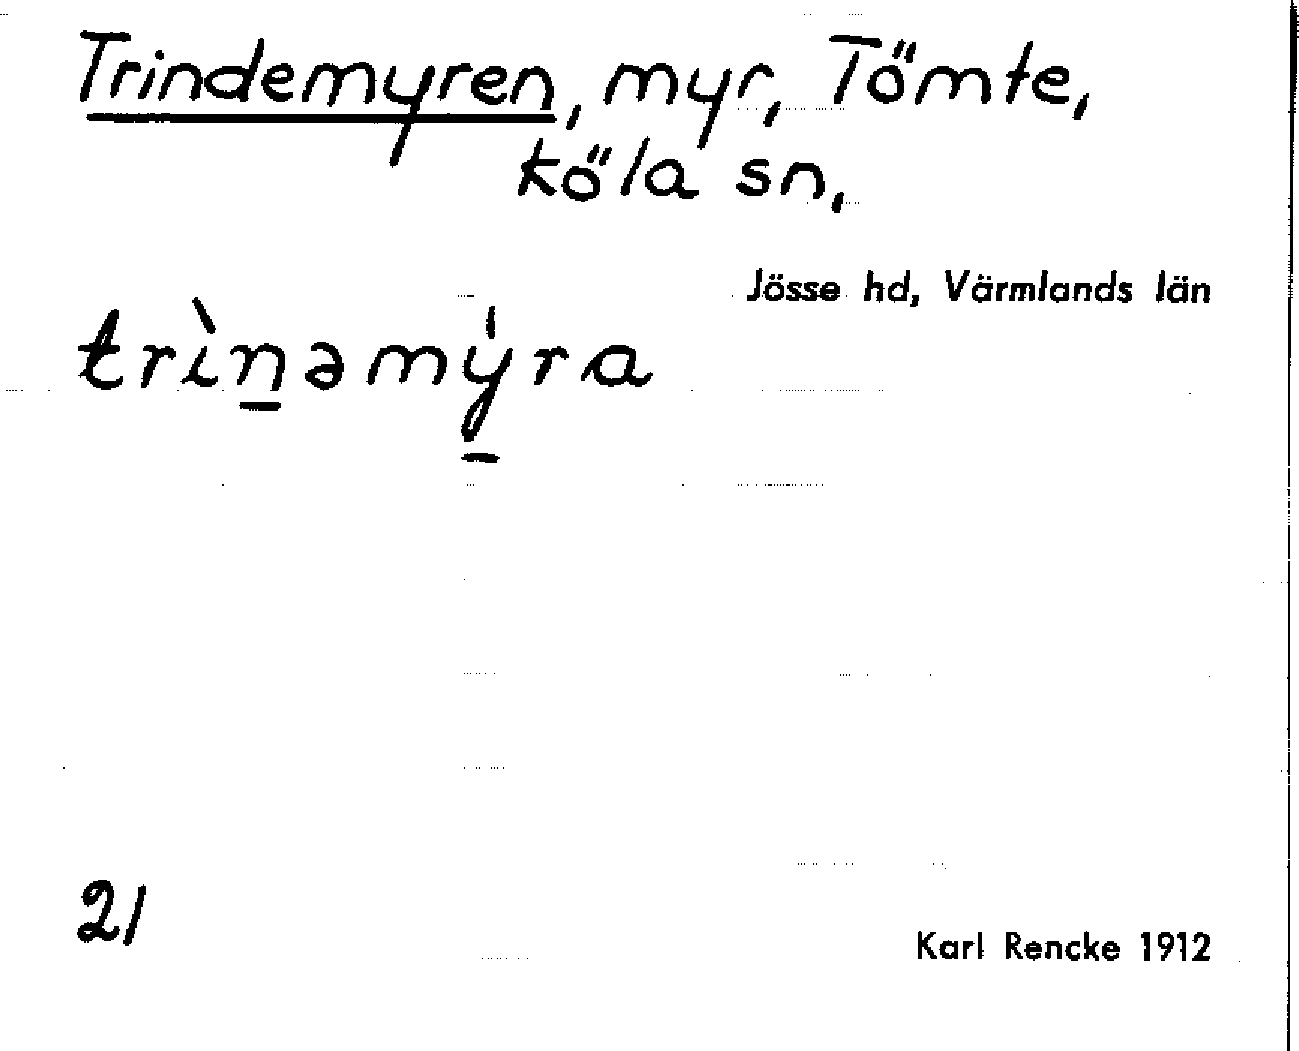 Trindemyren, myr, Tömte,
köla sn,
Jösse hd, Värmlands län
trìn̲əmý̲ra
21
Karl Rencke 1912